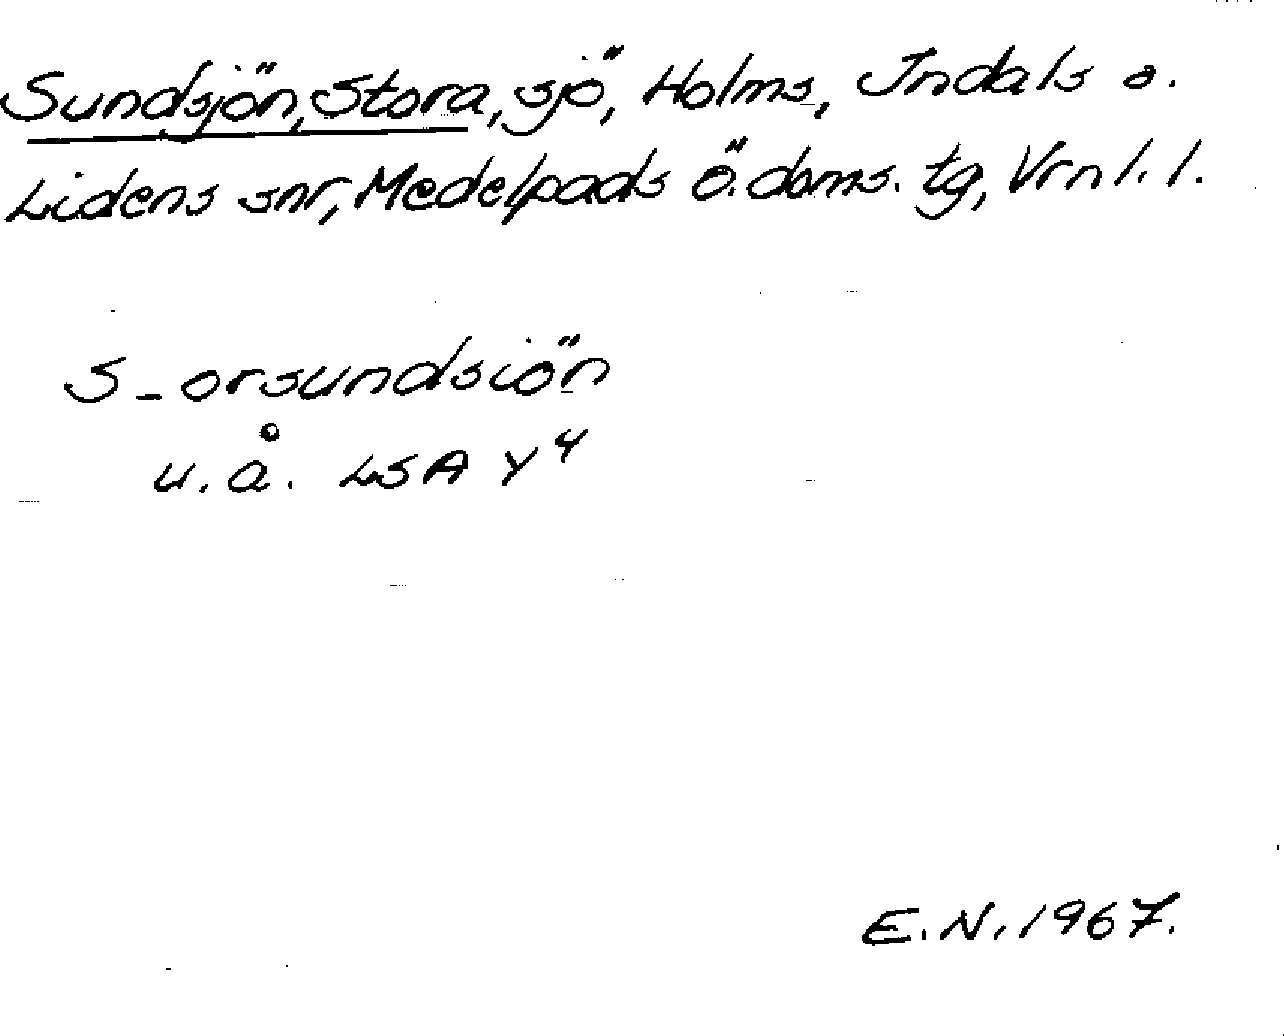 Sundsjön, Stora, sjö, Holms, Indals o.
Lidens snr, Medelpads Ö. doms. tg, Vrnl. l.
S_orsundsiön
u. å. LSA Y4
E.N. 1967.